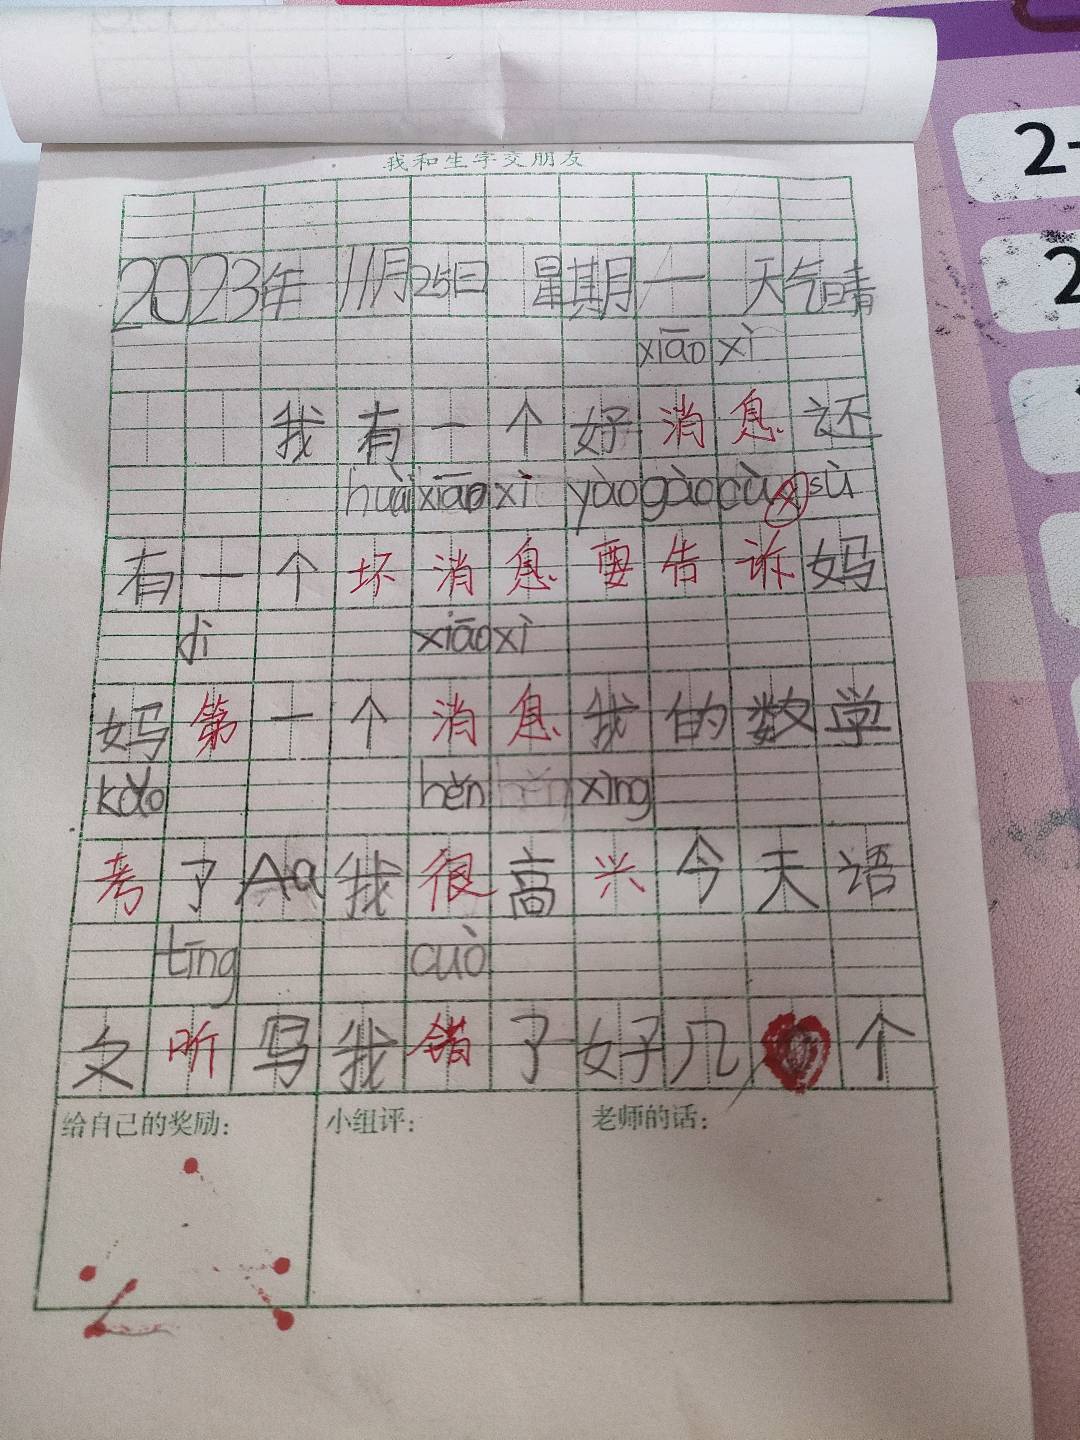 我和生字交朋友
2023年 11月25日 星期一 天气晴
xiāo xì
我有一个好消息还
huài xiāo xì yào gào cù sù
有一个坏消息要告诉妈
dì xiāo xì
妈第一个消息我的数学
kǎo hěn hěn xìng
考了Aa我很高兴今天语
tīng cuò
文听写我错了好几个
给自己的奖励:
小组评:
老师的话:
2
2